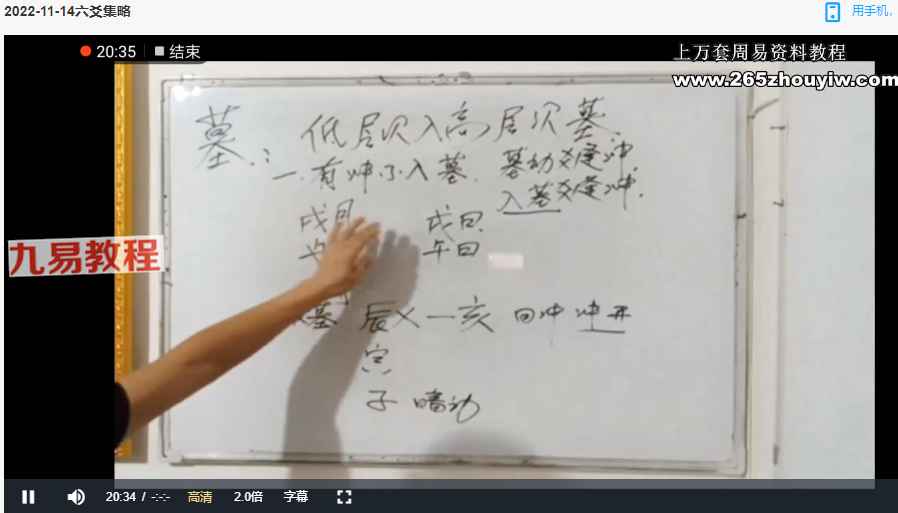 2022-11-14六爻集略
用手机,
20:35
结束
上万套周易资料教程
www.265zhouyiw.com
墓:
低层次入高层次墓.
一.有冲不入墓.
墓动爻逢冲.
入墓爻逢冲.
戌月
戌日
午日
九易教程
墓
辰乂一亥 回冲 冲开
子 暗动
20:34 / -:-:-
高清
2.0倍
字幕